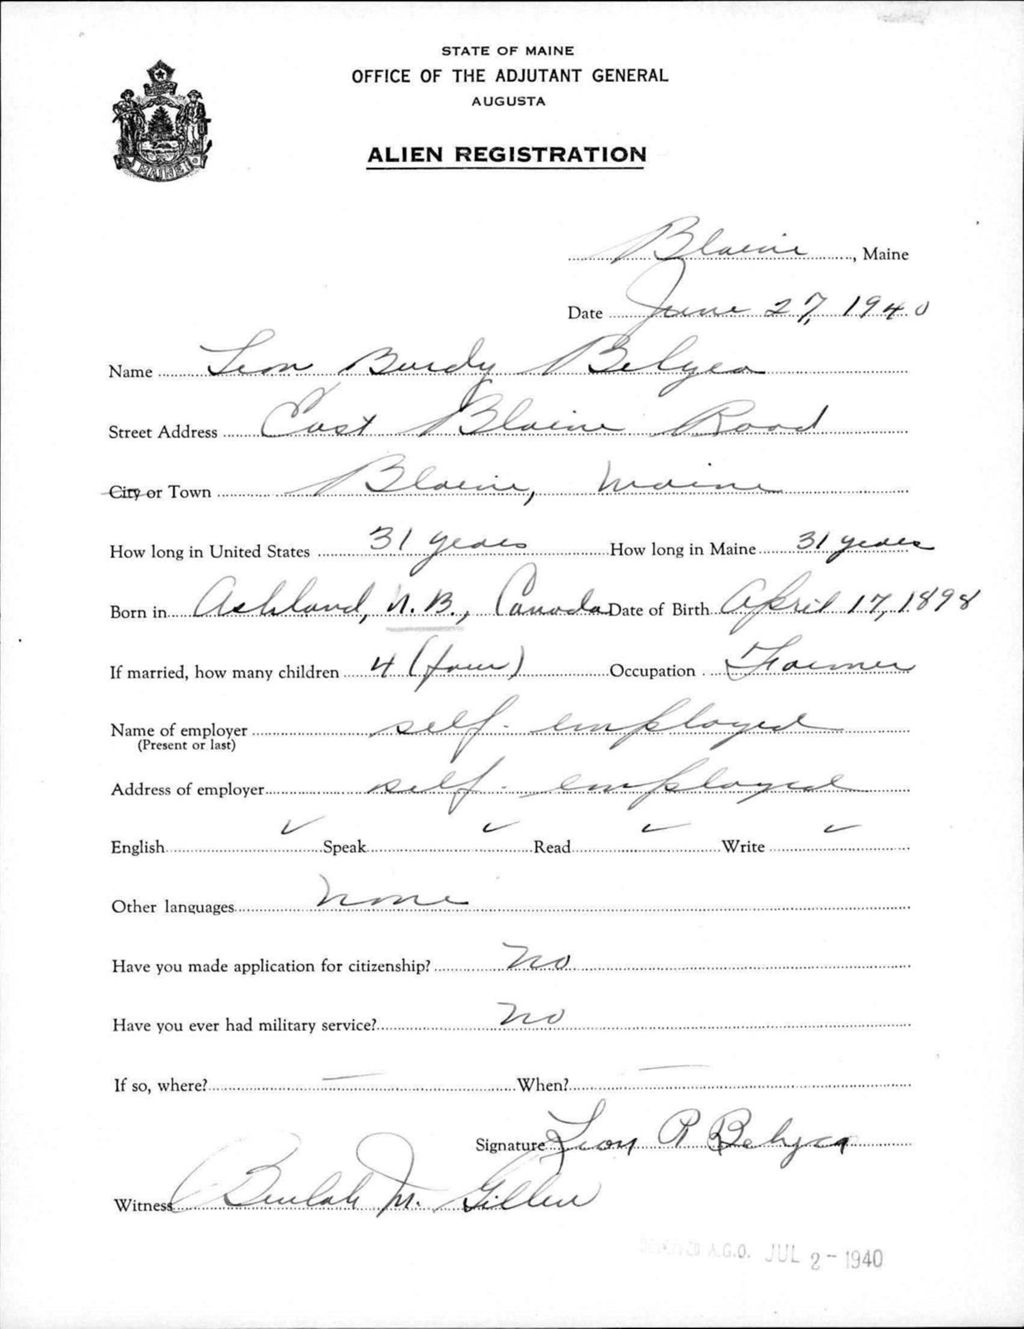 STATE OF MAINE
OFFICE OF THE ADJUTANT GENERAL
AUGUSTA
ALIEN REGISTRATION
MAINE
Blaine, Maine
Date June 27, 1940
Name Leon Burdy Belyea
Street Address East Blaine Road
City or Town Blaine, Maine
How long in United States 31 years How long in Maine 31 years
Born in Ashland, N.B., Canada Date of Birth April 17, 1898
If married, how many children 4 (four) Occupation Farmer
Name of employer self-employed
(Present or last)
Address of employer self-employed
English ✓ Speak ✓ Read ✓ Write ✓
Other languages None
Have you made application for citizenship? No
Have you ever had military service? No
If so, where? — When? —
Signature Leon R Belyea
Witness Beulah M. Gillen
A.G.O. JUL 2 - 1940